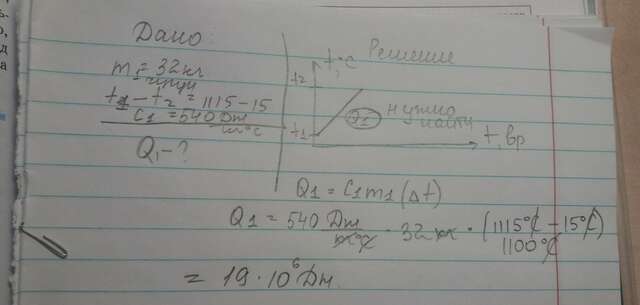 Дано:
m1 = 32 кг
чугун
t1 - t2 = 1115-15
C1 = 540 Дж
кг°С
Q1 - ?
Решение
t, °C
t2
t1
Q1
нужно
найти
t, вр
Q1 = C1m1(Δt)
Q1 = 540 Дж/кг°С · 32 кг · (1115°С - 15°С)
1100°С
= 19 · 10⁶ Дж